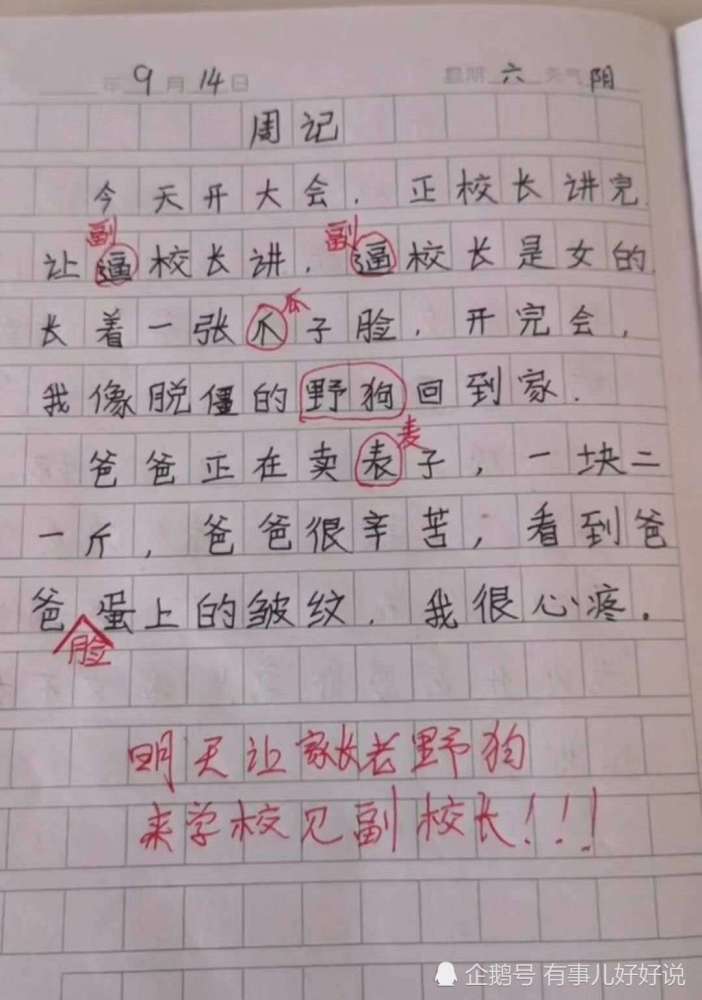 年 9 月 14 日 星期 六 天气 阴
周记
今天开大会．正校长讲完
副 副
让逼校长讲．逼校长是女的
长着一张爪子脸．开完会，
瓜
我像脱僵的野狗回到家．
爸爸正在卖表子，一块二
麦
一斤，爸爸很辛苦，看到爸
爸蛋上的皱纹．我很心疼．
脸
明天让家长老野狗
来学校见副校长！！！
企鹅号 有事儿好好说